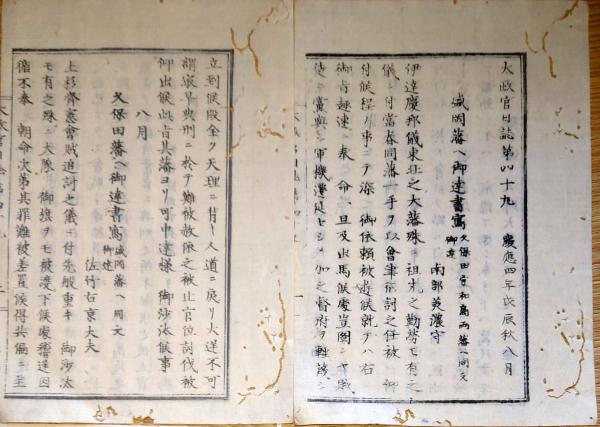 太政官日誌第四十九　慶應四年戊辰秋八月
盛岡藩ヘ御達書寫 久保田守和島両藩ヘ同文御達
南部美濃守
伊達慶邦儀東北之大藩殊ニ祖先之勤勞モ有之
儀ニ付當春同藩一手ヲ以會津征討之任被　仰
付候程ノ事ニテ深　御依頼被遊候就テハ右
御旨趣速ニ奉　命一旦及出馬候處豈圖ニヤ
徒ニ黨與シ軍機遷延セシメ加之督府ヲ
立到候段全ク天理ニ背キ人道ニ戻リ大逆不可
謂哀早典刑ニ於テ難被赦依之被止官位討伐被
仰出候此旨其藩ヨリ可申達様　御沙汰候事
八月
久保田藩ヘ御達書寫 盛岡藩ヘ同文御達
佐竹右京大夫
上杉齊憲會賊追討之儀ニ付先般重キ　御沙汰
モ有之殊ニ大隊　御旗ヲモ被渡下候處稽延因
循不奉　朝命次第其罪難被差置候得共偏ニ至